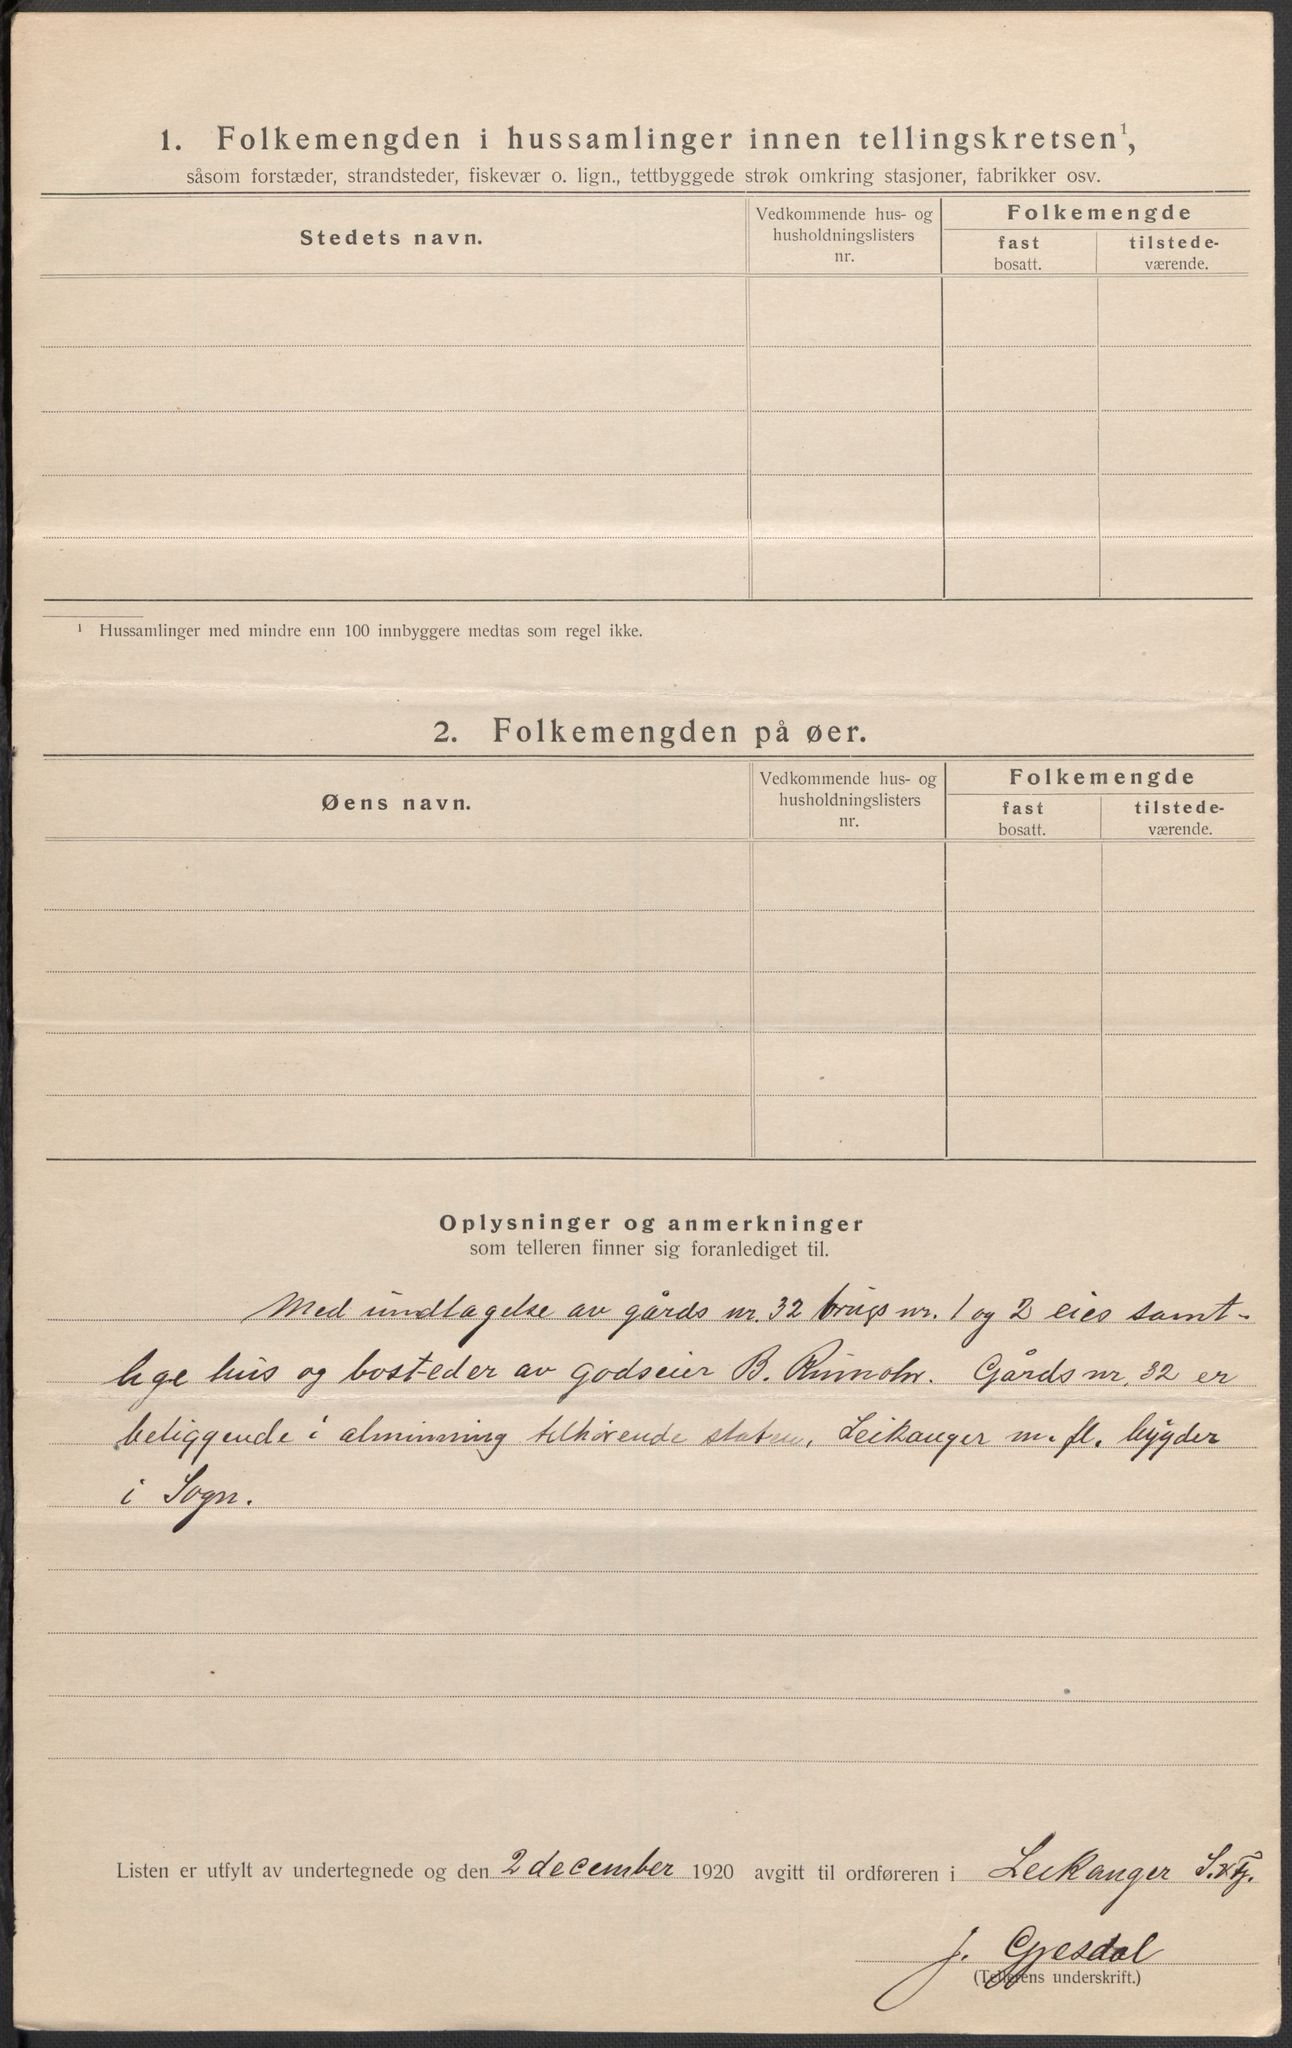 1. Folkemengden i hussamlinger innen tellingskretsen¹,
såsom forstæder, strandsteder, fiskevær o. lign., tettbyggede strøk omkring stasjoner, fabrikker osv.
Stedets navn.
Vedkommende hus- og
husholdningslisters
nr.
Folkemengde
fast
bosatt.
tilstede-
værende.
¹ Hussamlinger med mindre enn 100 innbyggere medtas som regel ikke.
2. Folkemengden på øer.
Øens navn.
Vedkommende hus- og
husholdningslisters
nr.
Folkemengde
fast
bosatt.
tilstede-
værende.
Oplysninger og anmerkninger
som telleren finner sig foranlediget til.
Med undtagelse av gårds nr. 32 brugs nr. 1 og 2 eies samt-
lige hus og bosteder av godseier B. Rumohr. Gårds nr. 32 er
beliggende i alminning tilhørende staten, Leikanger m. fl. bygder
i Sogn.
Listen er utfylt av undertegnede og den 2 december 1920 avgitt til ordføreren i Leikanger
J. Gjesdal
(Tellerens underskrift.)